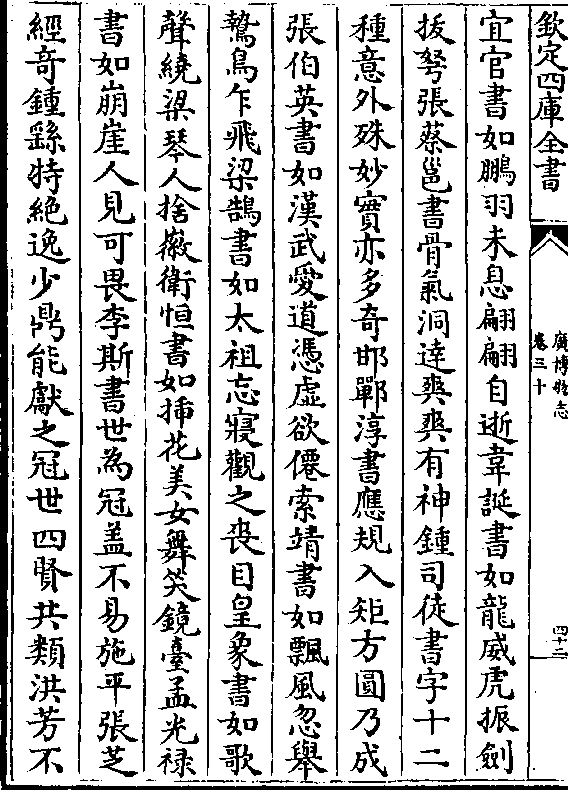 欽定四庫全書
廣博物志
卷三十
四十二
宜官書如鵬羽未息翩翩自逝韋誕書如龍威虎振劍
拔弩張蔡邕書骨氣洞達爽爽有神鍾司徒書字十二
種意外殊妙實亦多奇邯鄲淳書應規入矩方圓乃成
張伯英書如漢武愛道憑虛欲僊索靖書如飄風忽舉
鷙鳥乍飛梁鵠書如太祖忘寢觀之喪目皇象書如歌
聲繞梁琴人捨徽衛恒書如插花美女舞笑鏡臺孟光禄
書如崩崖人見可畏李斯書世為冠盖不易施平張芝
經竒鍾繇特絶逸少鼎能獻之冠世四賢共類洪芳不